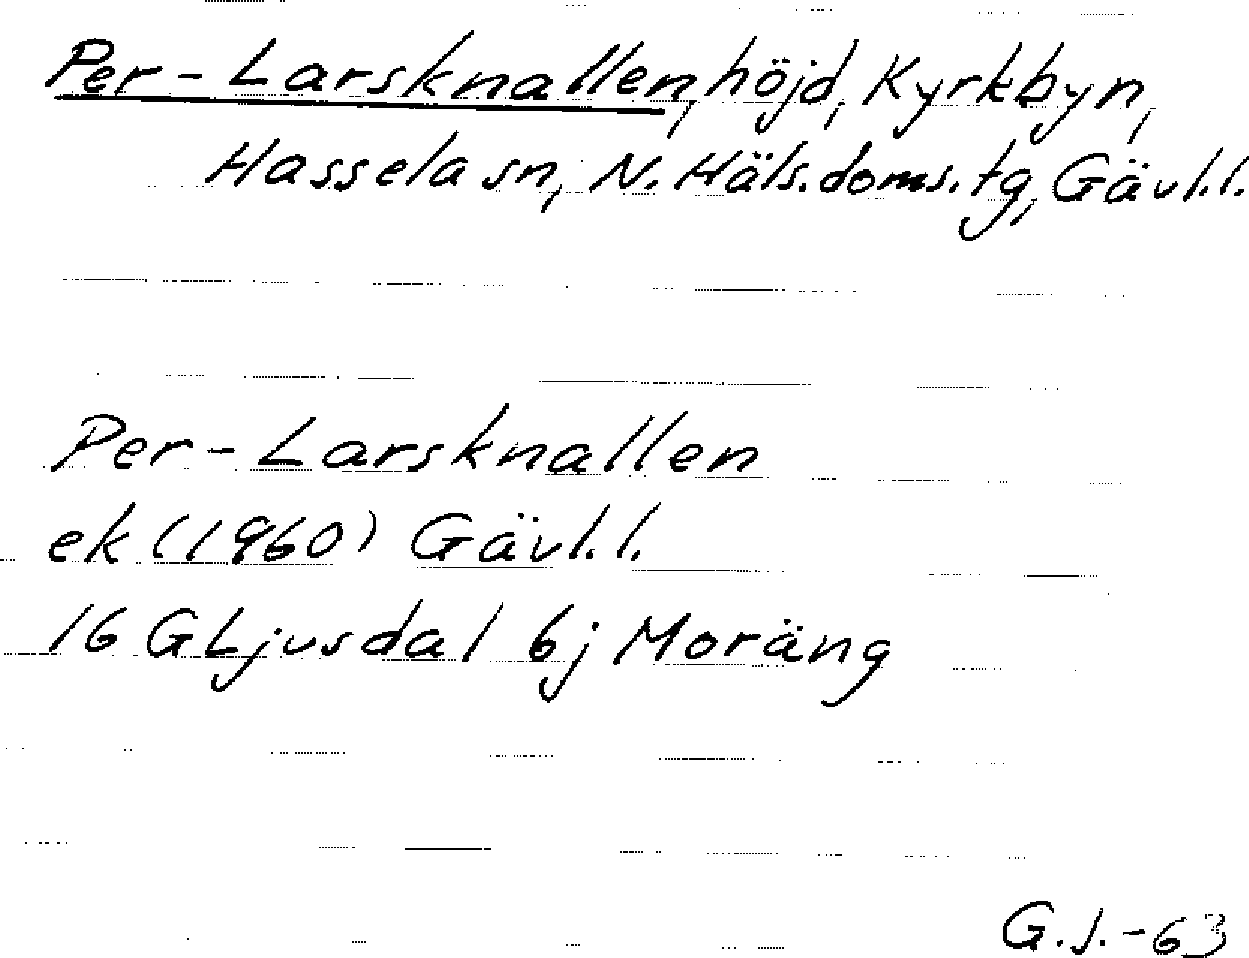 Per-Larsknallen, höjd, Kyrkbyn,
Hassela sn, N. Häls. doms. tg, Gävl. l.
Per-Larsknallen
ek (1960) Gävl. l.
16 G Ljusdal 6j Moräng
G.J.-63